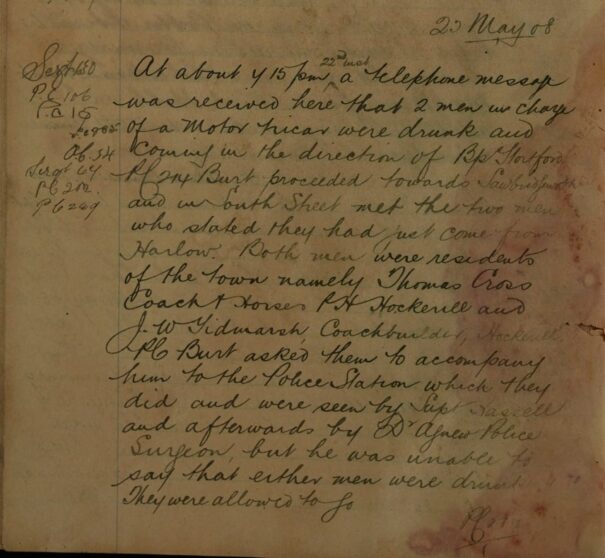 23 May 08
At about 7 15 pm 22nd inst a telephone message
was received here that 2 men in charge
of a Motor tricar were drunk and
coming in the direction of Bps Stortford
PC 214 Burt proceeded towards Sawbridgeworth
and in South Street met the two men
who stated they had just come from
Harlow. Both men were residents
of the town namely Thomas Cross
Coach & Horses P.H Hockerill and
J. W Tidmarsh, Coachbuilder, Hockerill
PC Burt asked them to accompany
him to the Police Station which they
did and were seen by Supt
and afterwards by Dr Agnew Police
Surgeon, but he was unable to
say that either men were drunk
They were allowed to go
Sergt
PC 106
Sergt
PC 202
PC 249